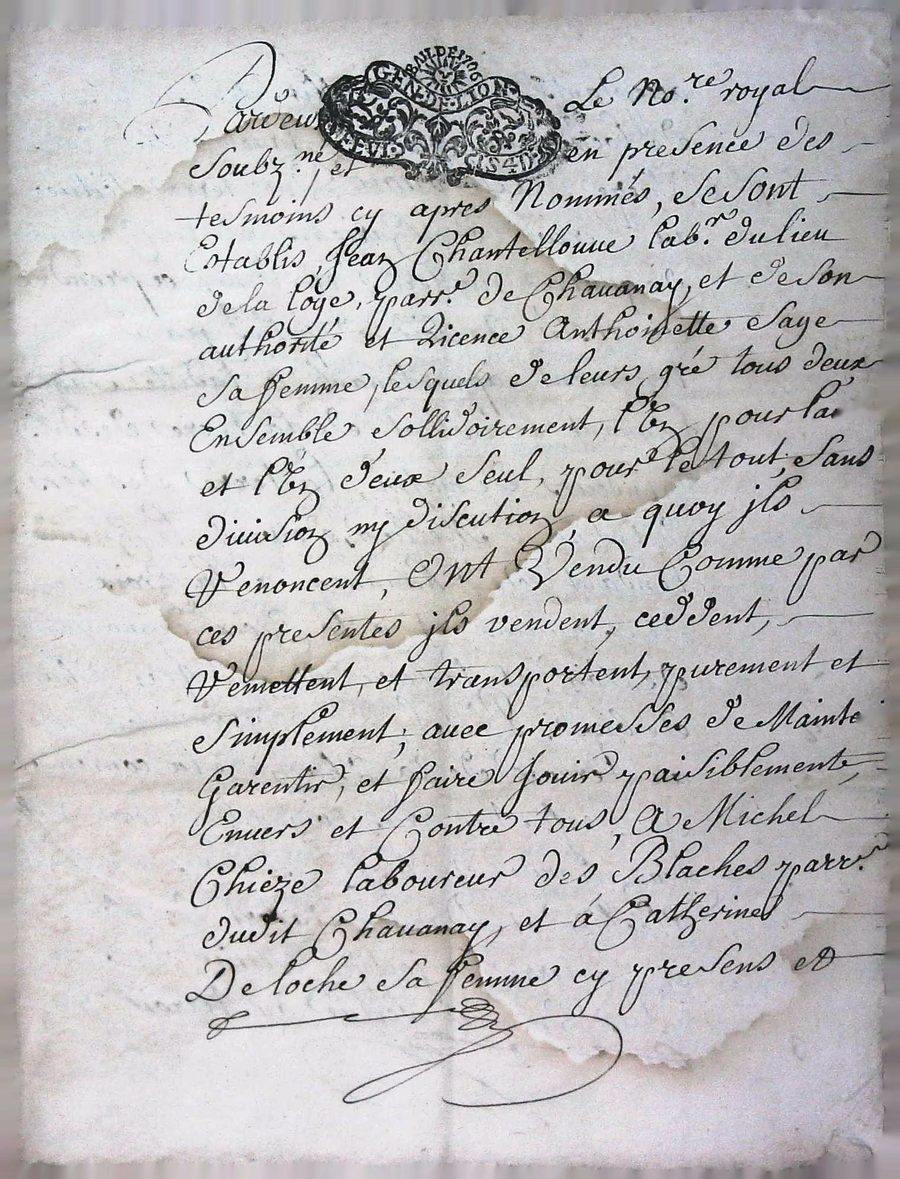 BAIL DE 1706
GEN. DE LION
Pardeu Le No.re royal
soubz.né, et en presence des
tesmoins cy apres Nommés, se sont
Establis Jean Chantellouue lab.r du lieu
de la loge, parr.e de Chauanay, et de son
authorité et Licence Anthoinette Saye
sa femme, lesquels de leurs gré tous deux
Ensemble sollidoirement, l'un pour la
et l'un d'eux seul, pour le tout, sans
diuision ny discution, a quoy jls
Renoncent, Ont Vendu Comme par
ces presentes jls vendent, ceddent,
Remettent, et transportent, purement et
simplement, auec promesses de Mainte
Garentir, et faire Jouir paisiblement,
Enuers et Contre tous, A Michel
Chieze laboureur des Blaches parr.e
dudit Chauanay, et á Catherine
Deloche sa femme cy presens et